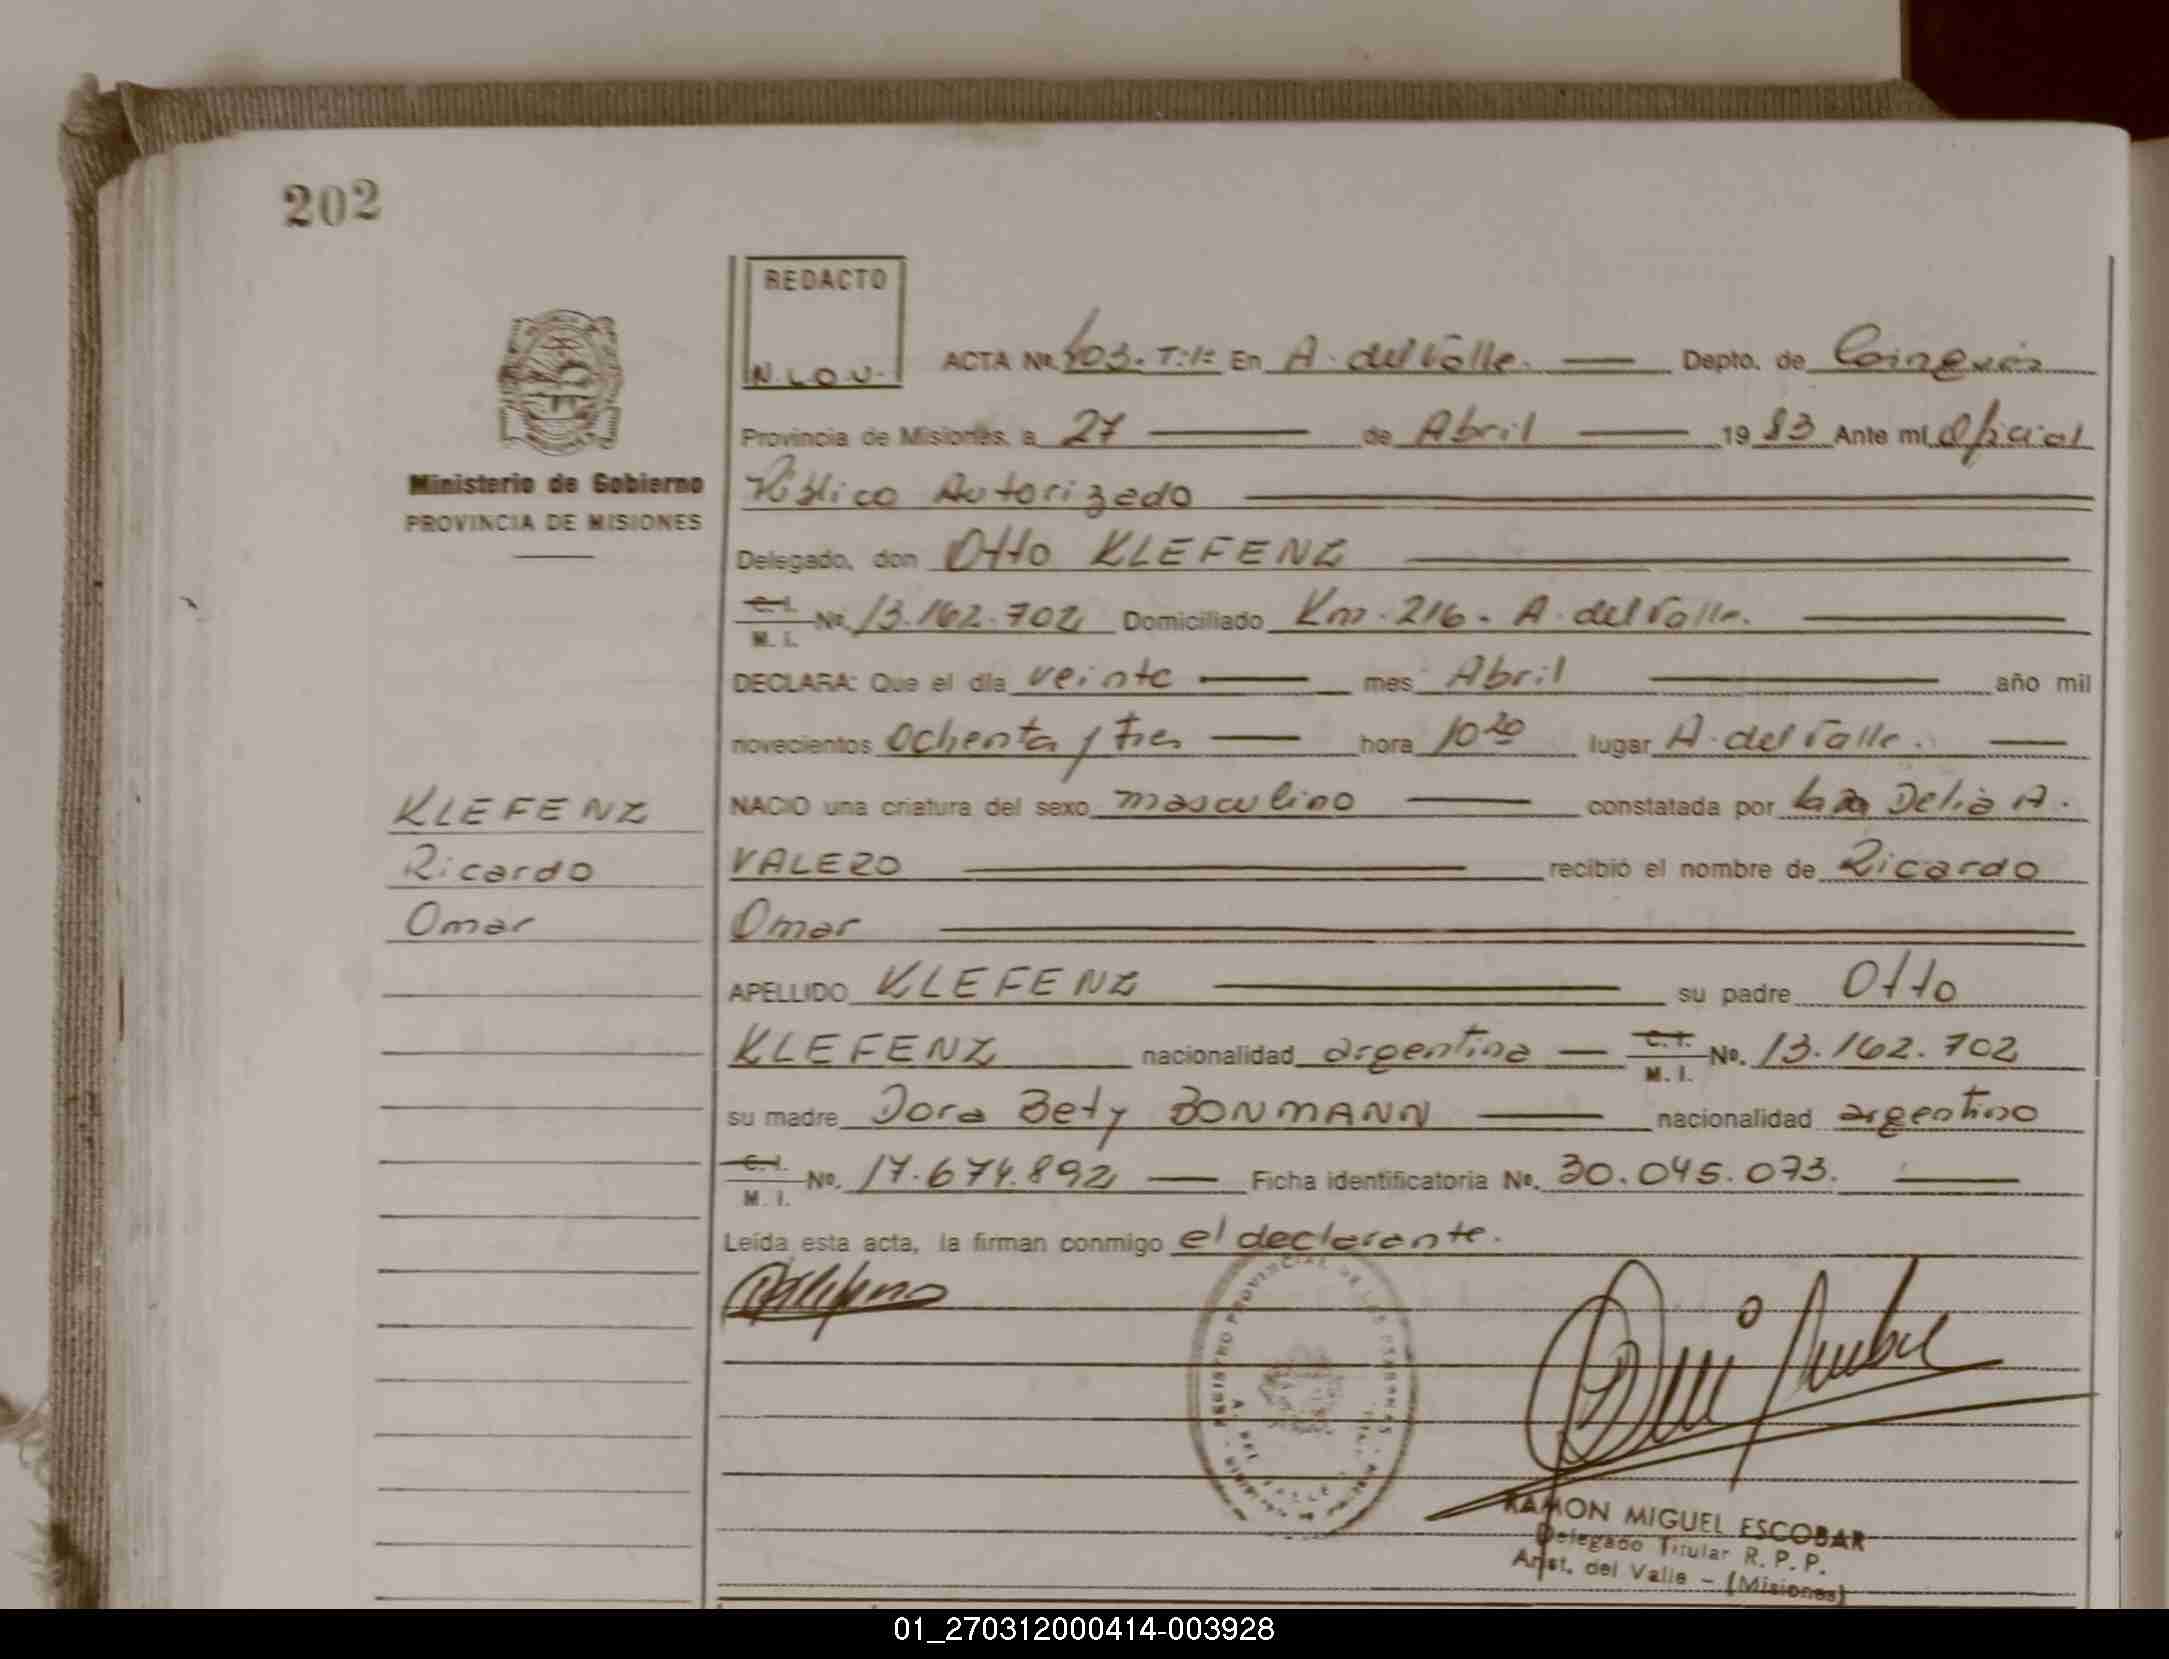 202
REDACTO
N.L.O.V.
ACTA Nº 103. T: 1º En A. del Valle. Depto. de Cainguás
Provincia de Misiones, a 27 de Abril 19 83 Ante mí Oficial
Público Autorizado
Ministerio de Gobierno
PROVINCIA DE MISIONES
Delegado, don Otto KLEFENZ
C. I. M. I. Nº. 13.162.702 Domiciliado Km. 216. A. del Valle.
DECLARA: Que el día veinte mes Abril año mil
novecientos ochenta y tres hora 10 20 lugar A. del Valle.
KLEFENZ
Ricardo
Omar
NACIO una criatura del sexo masculino constatada por Delia A.
VALERO recibió el nombre de Ricardo
Omar
APELLIDO KLEFENZ su padre Otto
KLEFENZ nacionalidad argentina C. I. M. I. Nº. 13.162.702
su madre Dora Bety BONMANN nacionalidad argentino
C. I. M. I. Nº. 17.674.892 Ficha identificatoria Nº. 30.045.073.
Leída esta acta, la firman conmigo el declarante.
REGISTRO PROVINCIAL DE LAS PERSONAS
A. DEL VALLE
RAMON MIGUEL ESCOBAR
Delegado Titular R. P. P.
Arist. del Valle - (Misiones)
01_270312000414-003928